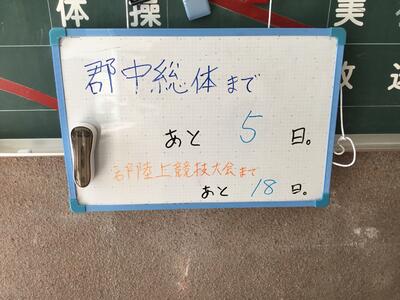 体 操
実
放 送
郡中総体まで
あと 5 日。
郡陸上競技大会まで
あと 18 日。